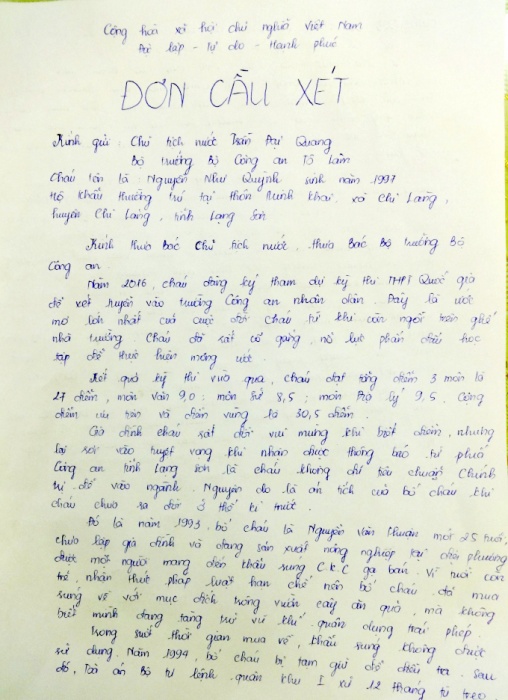 Cộng hoà xã hội chủ nghĩa Việt Nam
Độc lập - Tự do - Hạnh phúc
ĐƠN CẦU XÉT
Kính gửi: Chủ tịch nước Trần Đại Quang
Bộ trưởng Bộ Công an Tô Lâm
Cháu tên là Nguyễn Như Quỳnh sinh năm 1997
Hộ khẩu thường trú tại thôn Minh Khai, xã Chi Lăng,
huyện Chi Lăng, tỉnh Lạng Sơn
Kính thưa Bác Chủ tịch nước, thưa Bác Bộ trưởng Bộ
Công an.
Năm 2016, cháu đăng ký tham dự kỳ thi THPT Quốc gia
để xét tuyển vào trường Công an nhân dân. Đây là ước
mơ lớn nhất của cuộc đời cháu từ khi còn ngồi trên ghế
nhà trường. Cháu đã rất cố gắng, nỗ lực phấn đấu học
tập để thực hiện mong ước.
Kết quả kỳ thi vừa qua, cháu đạt tổng điểm 3 môn là
27 điểm, môn văn 9,0; môn Sử 8,5; môn Địa lý 9,5. Cộng
điểm ưu tiên và điểm vùng là 30,5 điểm.
Gia đình cháu rất đỗi vui mừng khi biết điểm, nhưng
lại rơi vào tuyệt vọng khi nhận được thông báo từ phía
Công an tỉnh Lạng Sơn là cháu không đủ tiêu chuẩn Chính
trị để vào ngành. Nguyên do là án tích của bố cháu khi
cháu chưa ra đời ở thế kỉ trước.
Đó là năm 1993, bố cháu là Nguyễn Văn Thuận mới 25 tuổi,
chưa lập gia đình và đang sản xuất nông nghiệp tại địa phương
được một người mang đến khẩu súng C.K.C gạ bán. Vì tuổi còn
trẻ, nhận thức pháp luật hạn chế nên bố cháu đã mua
súng về với mục đích trông vườn cây ăn quả, mà không
biết mình đang tàng trữ vũ khí quân dụng trái phép.
Trong suốt thời gian mua về, khẩu súng không được
sử dụng. Năm 1994, bố cháu bị tạm giữ để điều tra. Sau
đó, Toà án Bộ tư lệnh quân khu I xử 12 tháng tù treo